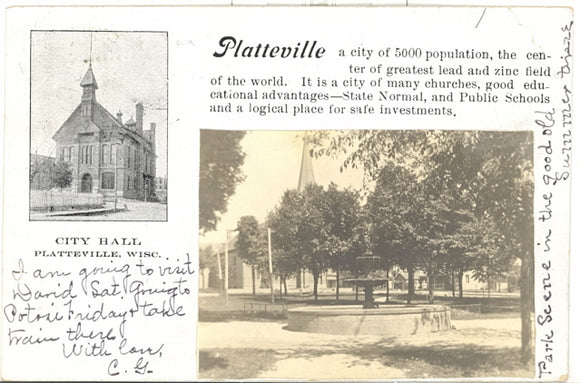 Platteville a city of 5000 population, the cen-
ter of greatest lead and zinc field
of the world. It is a city of many churches, good edu-
cational advantages—State Normal, and Public Schools
and a logical place for safe investments.
CITY HALL
PLATTEVILLE, WISC.
I am going to visit
David Sat. Going to
Potosi Friday & take
train there
With love,
C. G.
Park Scene in the good old
Summer time